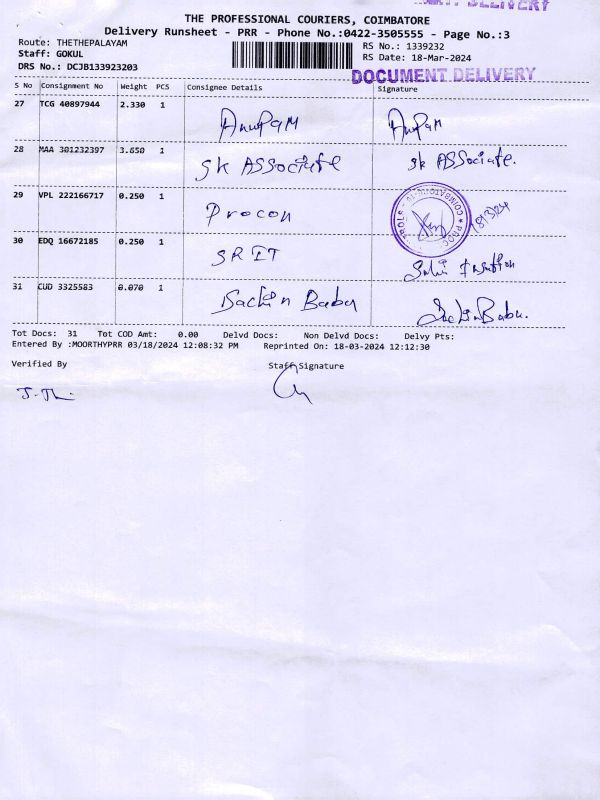 THE PROFESSIONAL COURIERS, COIMBATORE
Delivery Runsheet - PRR - Phone No.:0422-3505555 - Page No.:3
Route: THETHEPALAYAM
RS No.: 1339232
Staff: GOKUL
RS Date: 18-Mar-2024
DRS No.: DCJB133923203
DOCUMENT DELIVERY
S No Consignment No Weight PCS Consignee Details Signature
27 TCG 40897944 2.330 1 Anupam Anupam
28 MAA 301232397 3.650 1 SK ASSociate SK ASSociate.
29 VPL 222166717 0.250 1 Procon
30 EDQ 16672185 0.250 1 SRIT
31 CUD 3325583 0.070 1 Sachin Babu Sachin Babu.
Tot Docs: 31 Tot COD Amt: 0.00 Delvd Docs: Non Delvd Docs: Delvy Pts:
Entered By :MOORTHYPRR 03/18/2024 12:08:32 PM Reprinted On: 18-03-2024 12:12:30
Verified By Staff Signature